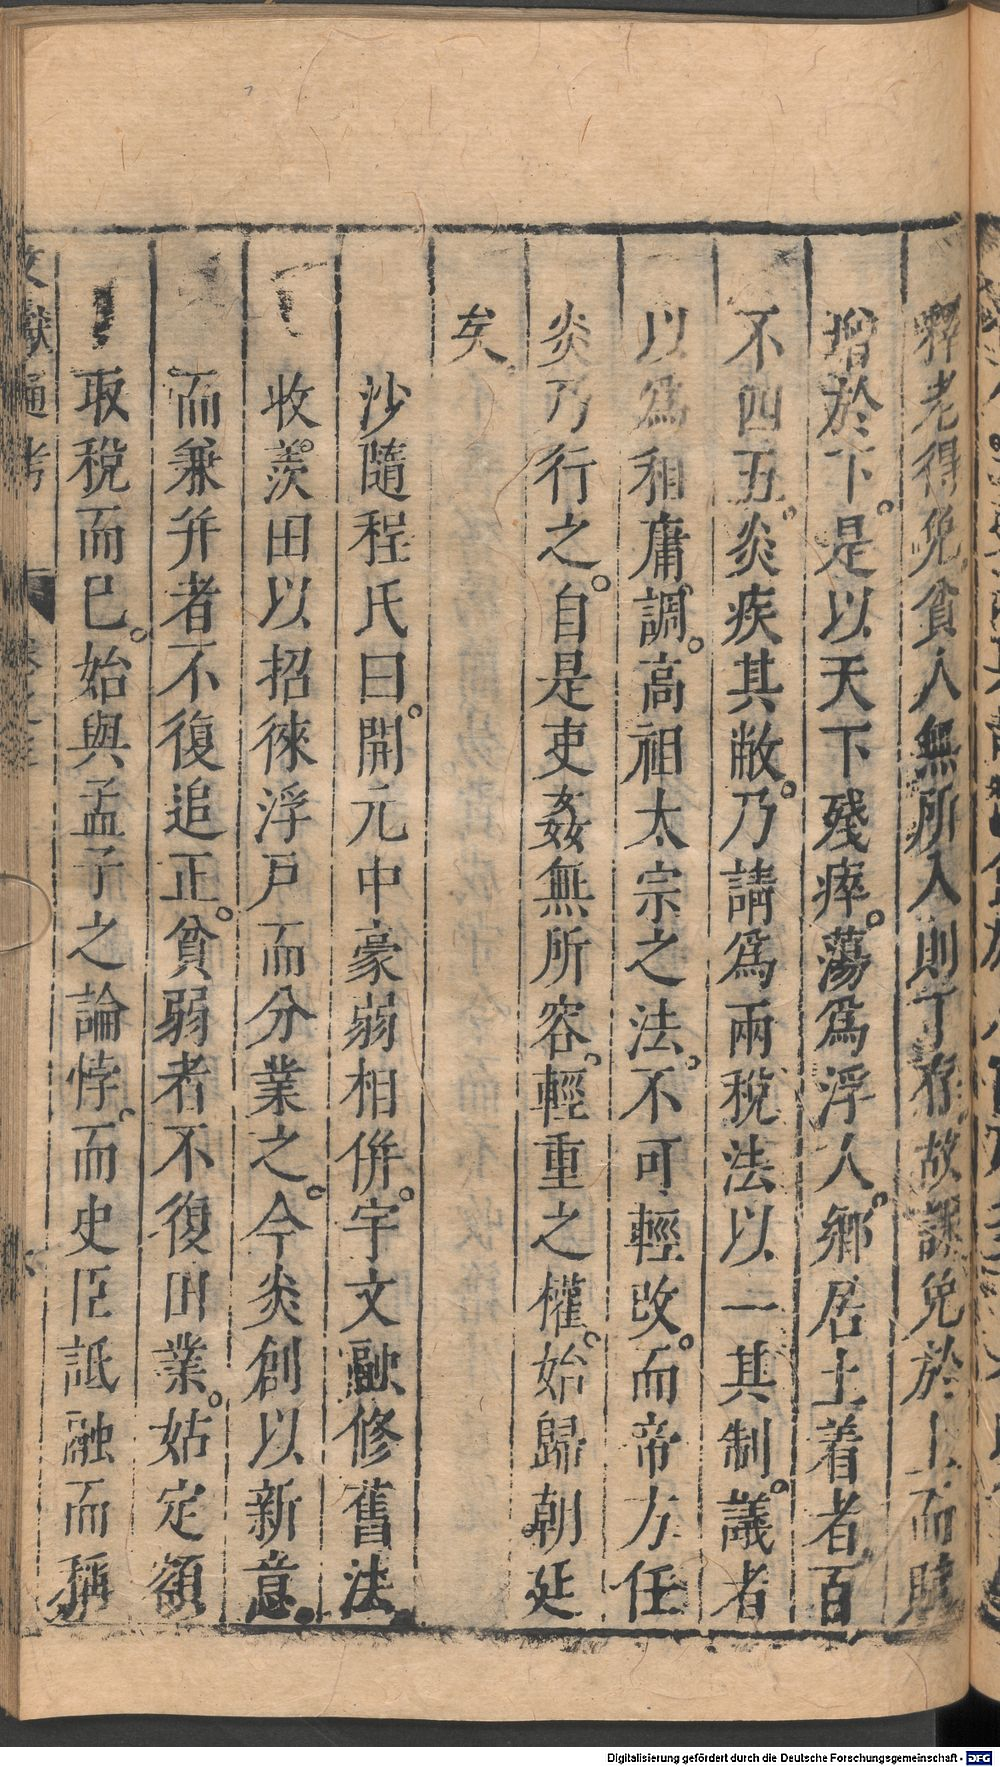 釋老得免。貧人無所入則丁存。故課免於上而賦
增於下。是以天下殘瘁。蕩爲浮人。鄉居土着者。百
不四五。炎疾其敝。乃請爲兩稅法以一其制。議者
以爲租庸調。高祖太宗之法。不可輕改。而帝方任
炎乃行之。自是吏姦無所容。輕重之權。始歸朝廷
矣。
沙隨程氏曰。開元中豪弱相併。宇文融修舊法。
收羨田以招徠浮戶而分業之。今炎創以新意。
而兼并者不復追正。貧弱者不復田業。姑定額
取稅而已。始與孟子之論悖。而史臣詆融而稱
文獻通考
Digitalisierung gefördert durch die Deutsche Forschungsgemeinschaft - DFG